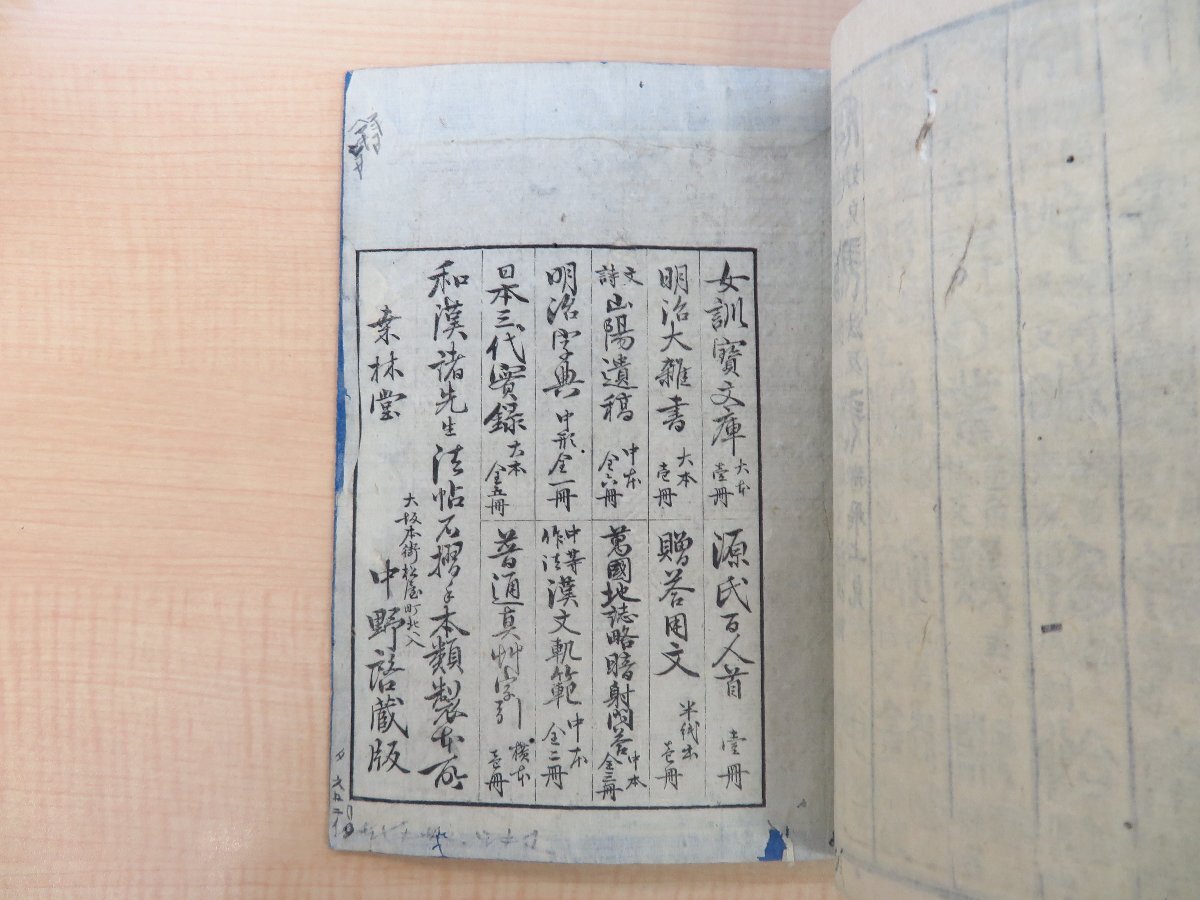 女訓寶文庫 大本壹冊
源氏百人首 壹冊
明治大雜書 大本壱冊
贈答用文 半紙出壱冊
文詩山陽遺稿 中本全六冊
萬國地誌略暗射問答 中本全三冊
明治字典 中形全一冊
中等作法漢文軌範 中本全二冊
日本三代實録 大本全五冊
普通真艸字引 横本壱冊
和漢諸先生法帖石摺手本類製本所
大坂本街松屋町北入
桒林堂 中野 蔵版